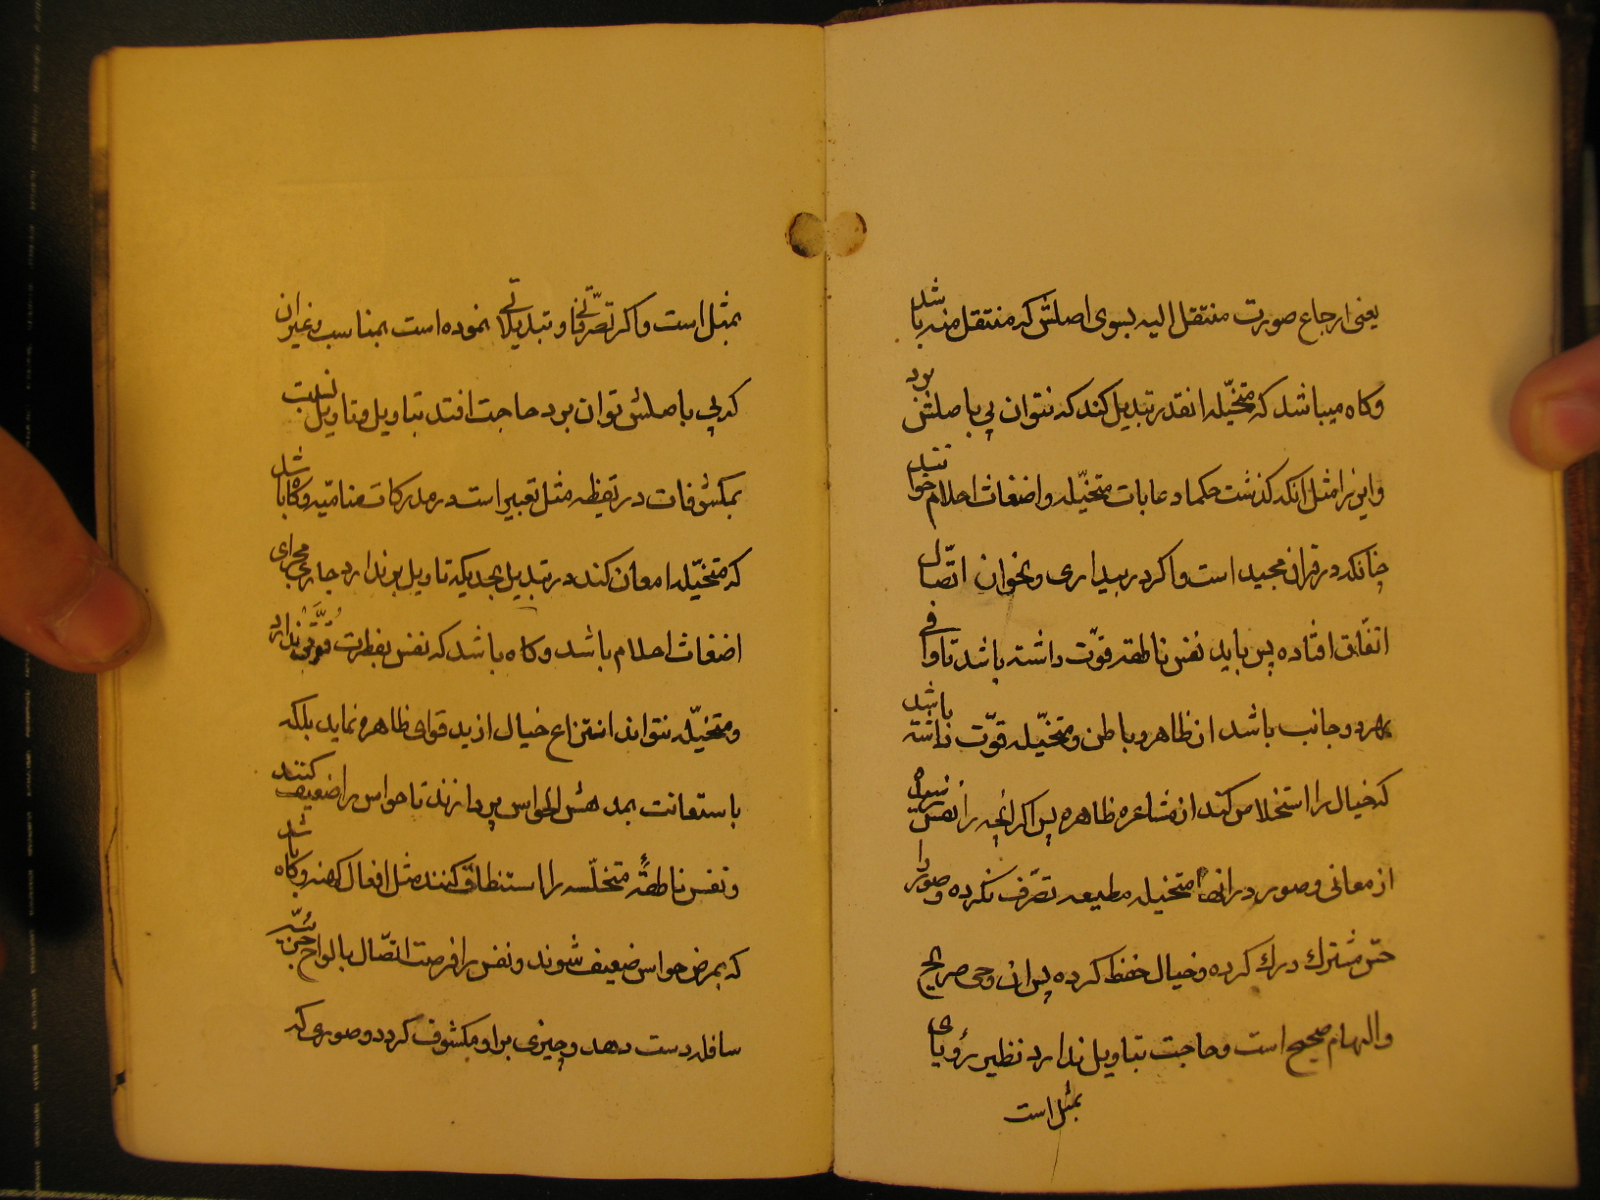 یعنی ارجاع صورت منتقل الیه بسوی اصلش که منتقل منه باشد
وکاه میباشد که متخیّله انقدر تبدیل کند که نتوان پی باصلش برد
واین را مثل انکه کذشت حکما دعابات متخیّله واضغاث احلام خوانند
چنانکه در قران مجید است واکر در بیداری ونحوان اتّصال
اتفّاق افتاده پس باید نفس ناطقه قوّت داشته باشد تا وافی
بهر دو جانب باشد از ظاهر وباطن ومتخیّله قوّت داشته باشد
که خیال را استخلاص کند از مشاعره ظاهره پس اکر انچه را نفس دیده
از معانی وصور در انها متخیله مطیعه تصّرف نکرده وصور را
حسّ مشترك درك کرده وخیال حفظ کرده پس ان وحی صریح
والهام صحیح است وحاجت بتاویل ندارد نظیر رؤیای
بمثل است
بمثل است واکر تصرّفاتی وتبدیلاتی نموده است بمناسب وغیر ان
که پی باصلش توان برد حاجت افتد بتاویل وتاویل نسبت
بمکشوفات در یقظه مثل تعبیر است در مدرکات منامیّه وکاه باشد
که متخیّله امعان کند در تبدیل بحدیکه تاویل بر ندارد جاری مجرای
اضغاث احلام باشد وکاه باشد که نفس بفطرت قوّتی ندارد
ومتخیّله نتواند انتزاع خیال از ید قوای ظاهره نماید بلکه
باستعانت بمدهش الحواس پردازند تا حواس را ضعیف کنند
ونفس ناطقهٔ متخلّسه را استنطاق کنند مثل افعال کهنه وکاه باشد
که بمرض حواس ضعیف شوند ونفس را فرصت اتّصال بالواح جزئیّه
سافله دست دهد وچیزی بر او مکشوف کردد وصوری که